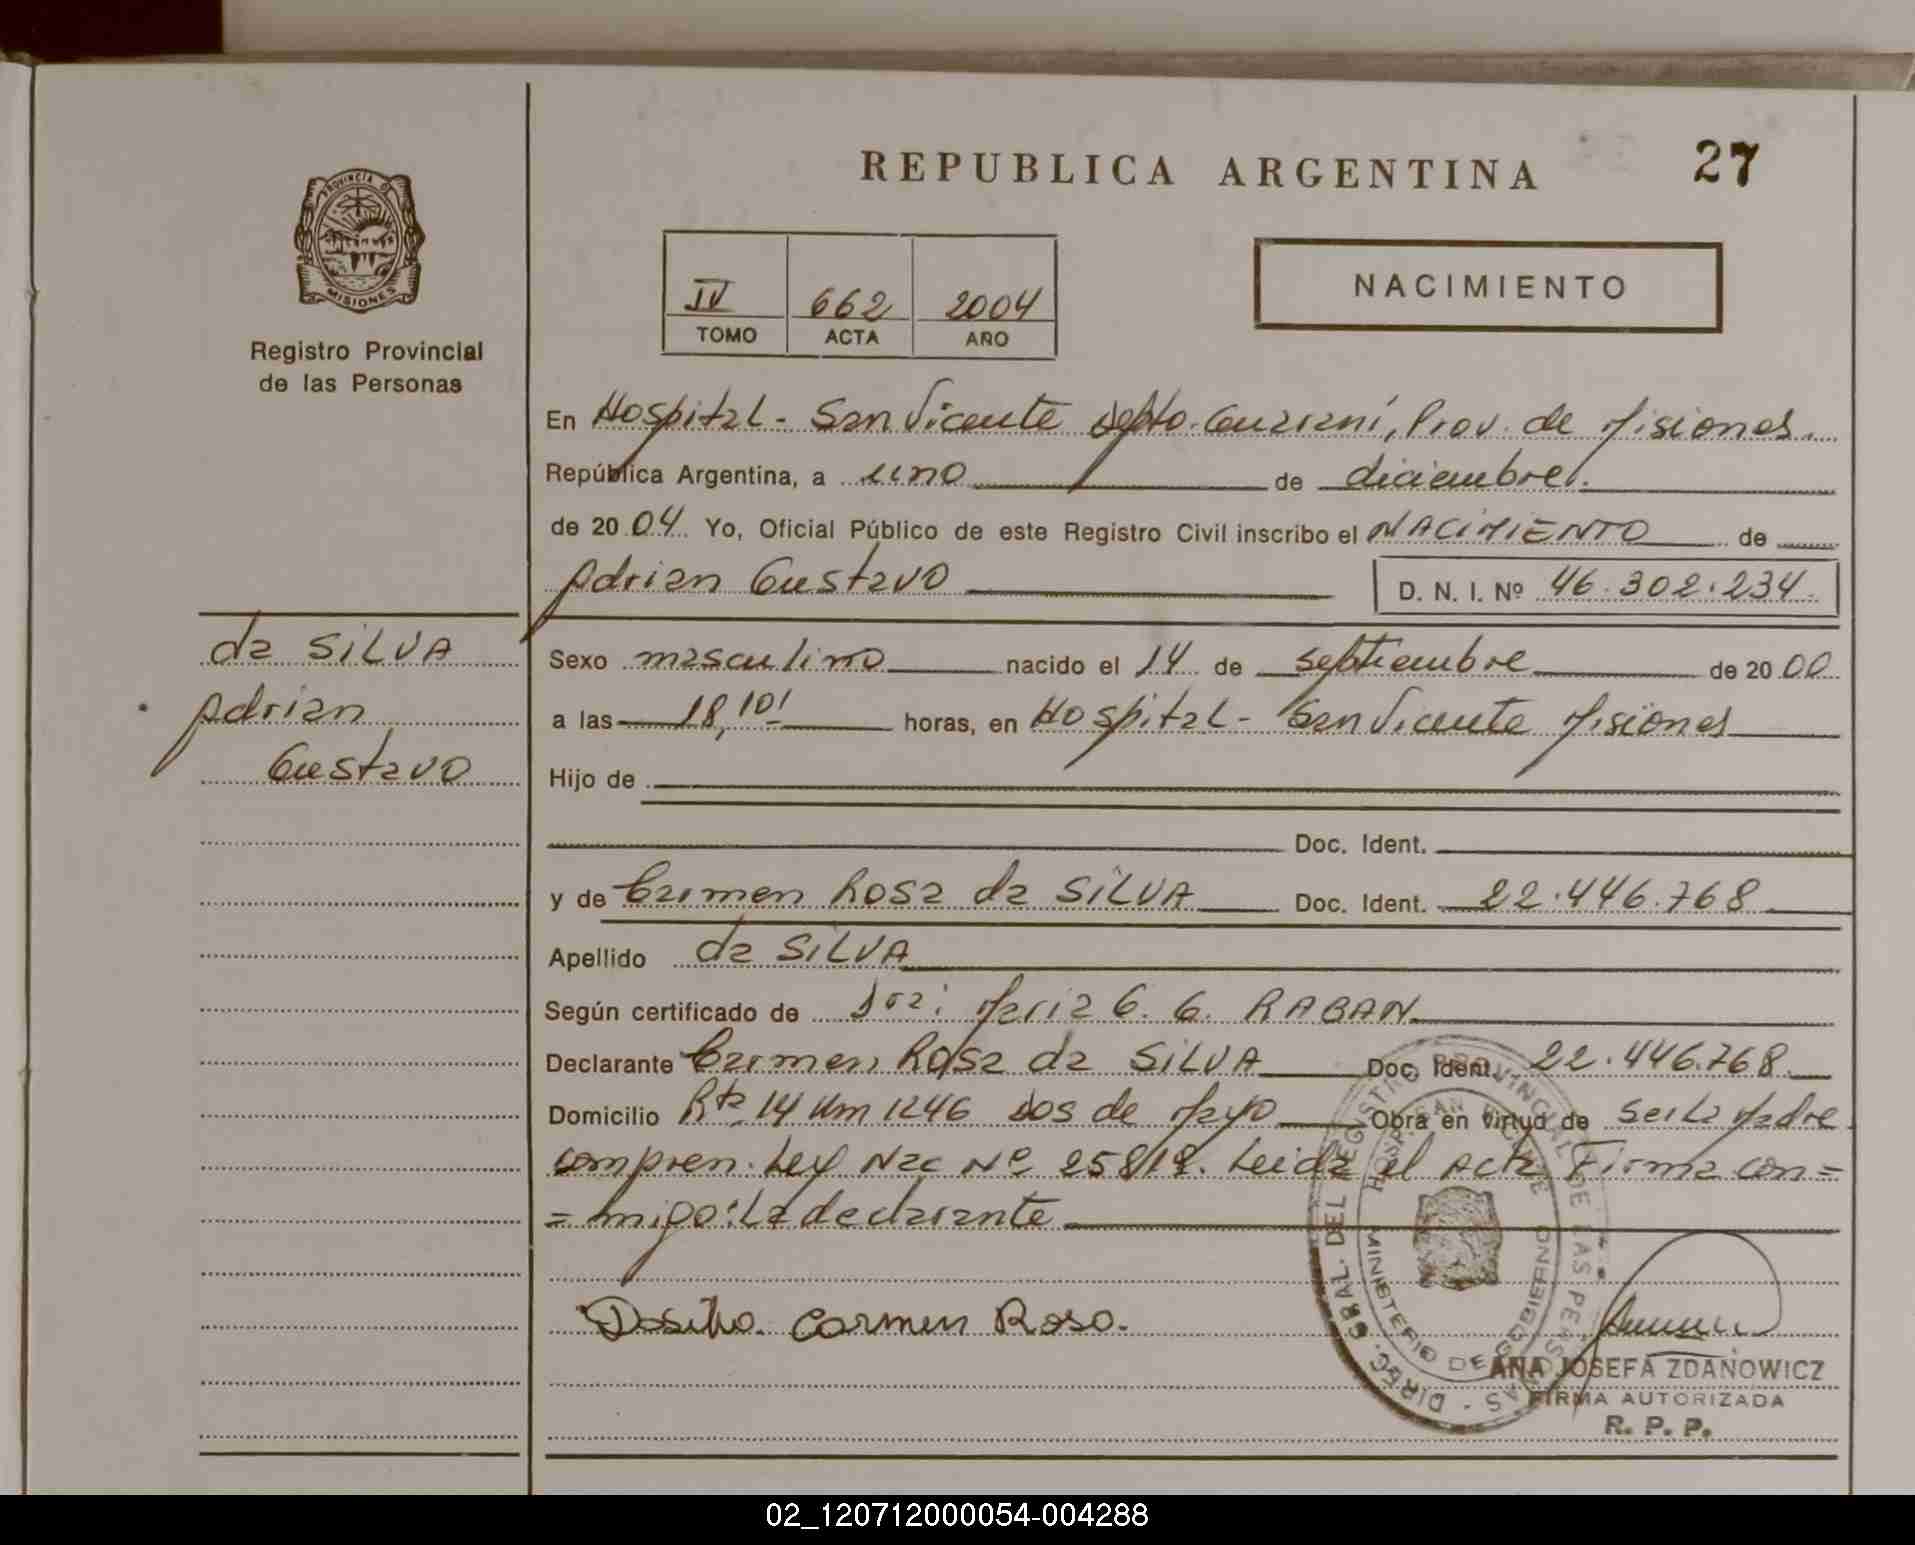 REPUBLICA ARGENTINA
27
PROVINCIA D
MISIONES
Registro Provincial
de las Personas
IV 662 2004
TOMO ACTA AÑO
NACIMIENTO
En Hospital - San Vicente Depto. Guaraní, Prov. de Misiones.
República Argentina, a uno de diciembre.
de 2004 Yo, Oficial Público de este Registro Civil inscribo el NACIMIENTO de
Adrian Gustavo D. N. I. Nº 46.302.234.
da SILVA
Adrian
Gustavo
Sexo masculino nacido el 14 de septiembre de 2000
a las 18,10! horas, en Hospital - San Vicente Misiones
Hijo de
Doc. Ident.
y de Carmen Rosa da SILVA Doc. Ident. 22.446.768
Apellido da SILVA
Según certificado de Dra: Maria G. G. RABAN
Declarante Carmen Rosa da SILVA Doc. Ident. 22.446.768.
Domicilio Rta 14 Km 1246 Dos de Mayo Obra en virtud de Ser la Madre
compren. Ley Nac Nº 25819. Leida el Acta Firma con=
=migo: La declarante
Dasilva. Carmen Rosa.
DIREC. GRAL. DEL REGISTRO PROVINCIAL DE LAS PERSONAS
HOSP. SAN VICENTE
MINISTERIO DE GOBIERNO
ANA JOSEFA ZDANOWICZ
FIRMA AUTORIZADA
R. P. P.
02_120712000054-004288